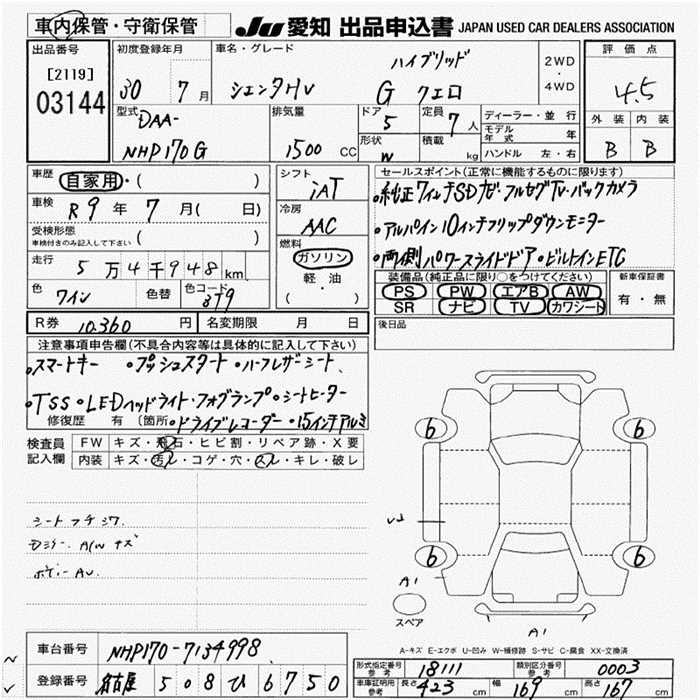 車内保管・守衛保管 JU 愛知 出品申込書 JAPAN USED CAR DEALERS ASSOCIATION
出品番号 [2119] 03144
初度登録年月 30 7月
車名・グレード シエンタHV ハイブリッド G クエロ
2WD ・ 4WD
評価点 4.5
外装 B 内装 B
型式 DAA- NHP170G
排気量 1500 CC
ドア 5
形状 W
定員 7人
積載 kg
ディーラー・並行
モデル年式 年
ハンドル 左・右
車歴 自家用・( )
車検 R9年7月( 日)
受検形態 車検付きのみ記入して下さい ( )
走行 5万4千948km
色 ワイン 色替 色コード 3T9
シフト iAT
冷房 AAC
燃料 ガソリン・軽・油 ( )
セールスポイント(正常に機能するものに限ります)
•純正7インチSDナビ・フルセグTV・バックカメラ
•アルパイン10インチフリップダウンモニター
•両側パワースライドドア •ビルトインETC
装備品(純正品に限り○をつけてください)
PS PW エアB AW
SR ナビ TV カワシート
新車保証書 有・無
R券 10,360円 名変期限 月 日
後日品
注意事項申告欄(不具合内容等は具体的に記入して下さい)
•スマートキー •プッシュスタート •ハーフレザーシート
•TSS •LEDヘッドライト・フォグランプ •シートヒーター
修復歴 有 〔箇所 •ドライブレコーダー •15インチアルミ
検査員記入欄
FW キズ・飛石・ヒビ割・リペア跡・X要
内装 キズ・汚レ・コゲ・穴・スレ・キレ・破レ
シートフチシワ
A/W キズ
ボデー AU
6 6
6 6
A1
スペア
A1
A-キズ E-エクボ U-凹み W-補修跡 S-サビ C-腐食 XX-交換済
車台番号 NHP170-7134998
登録番号 名古屋 508 ひ 6750
形式指定番号 参考 18111 類別区分番号 参考 0003
車庫証明用 参考 長さ 423 cm 幅 169 cm 高さ 167 cm